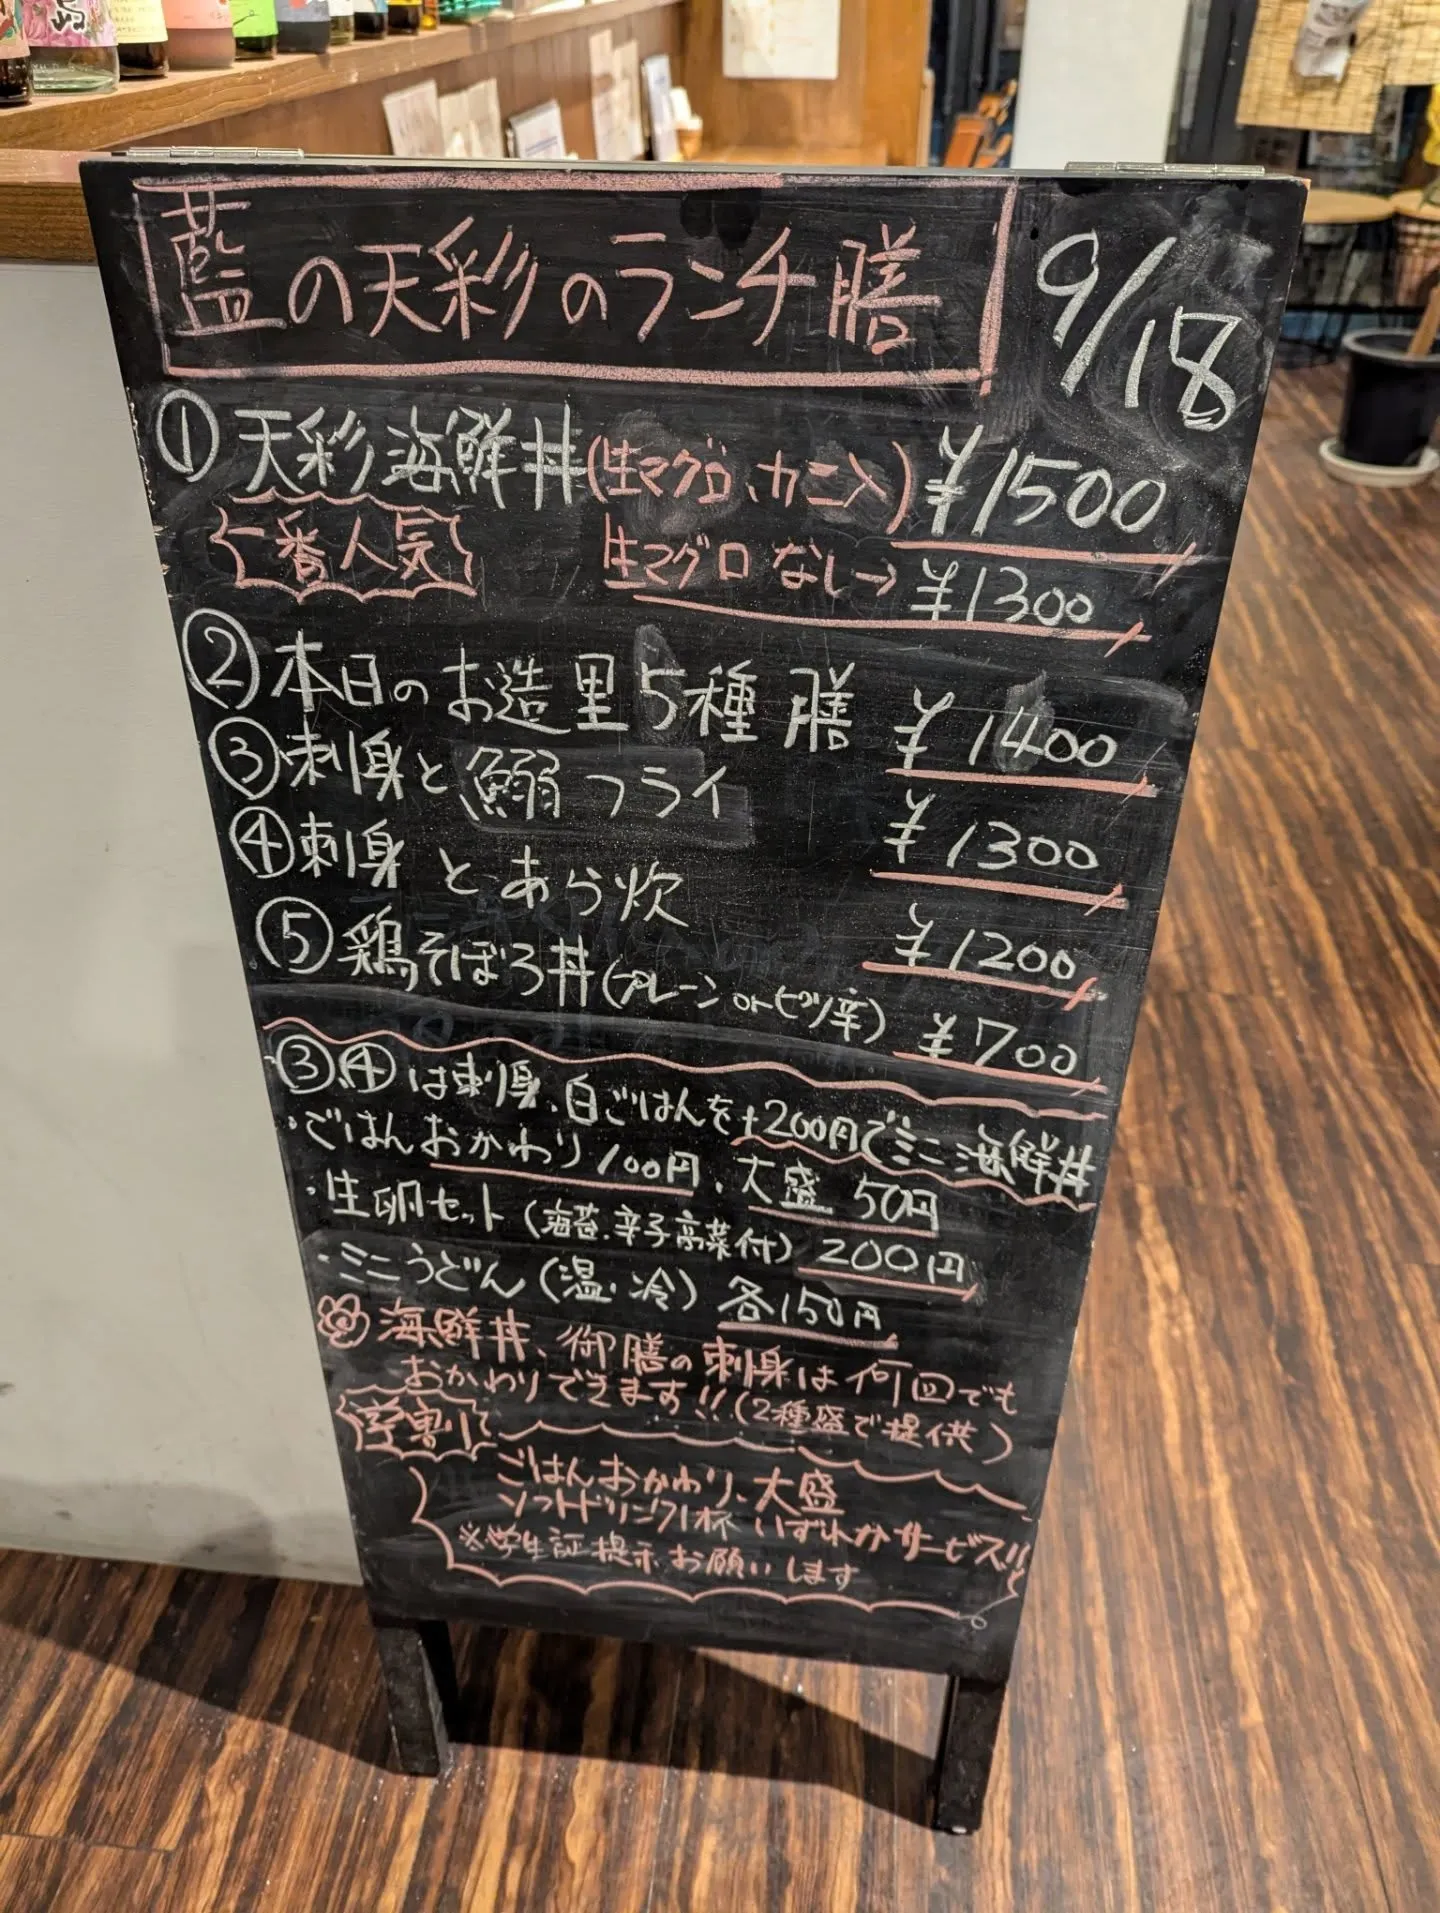 藍の天彩のランチ膳
9/18
①天彩海鮮丼(生マグロ、カニ入) ¥1500
一番人気 生マグロなし→ ¥1300
②本日のお造里5種膳 ¥1400
③刺身と鰯フライ ¥1300
④刺身とあら炊 ¥1200
⑤鶏そぼろ丼(プレーンorピリ辛) ¥700
③、④は刺身、白ごはんを+200円でミニ海鮮丼
・ごはんおかわり100円、大盛50円
・生卵セット(海苔、辛子高菜付)200円
・ミニうどん(温・冷)各150円
海鮮丼、御膳の刺身は何回でも
おかわりできます!!(2種盛で提供)
学割
ごはんおかわり、大盛
ソフトドリンク1杯いずれかサービス!!
※学生証提示お願いします